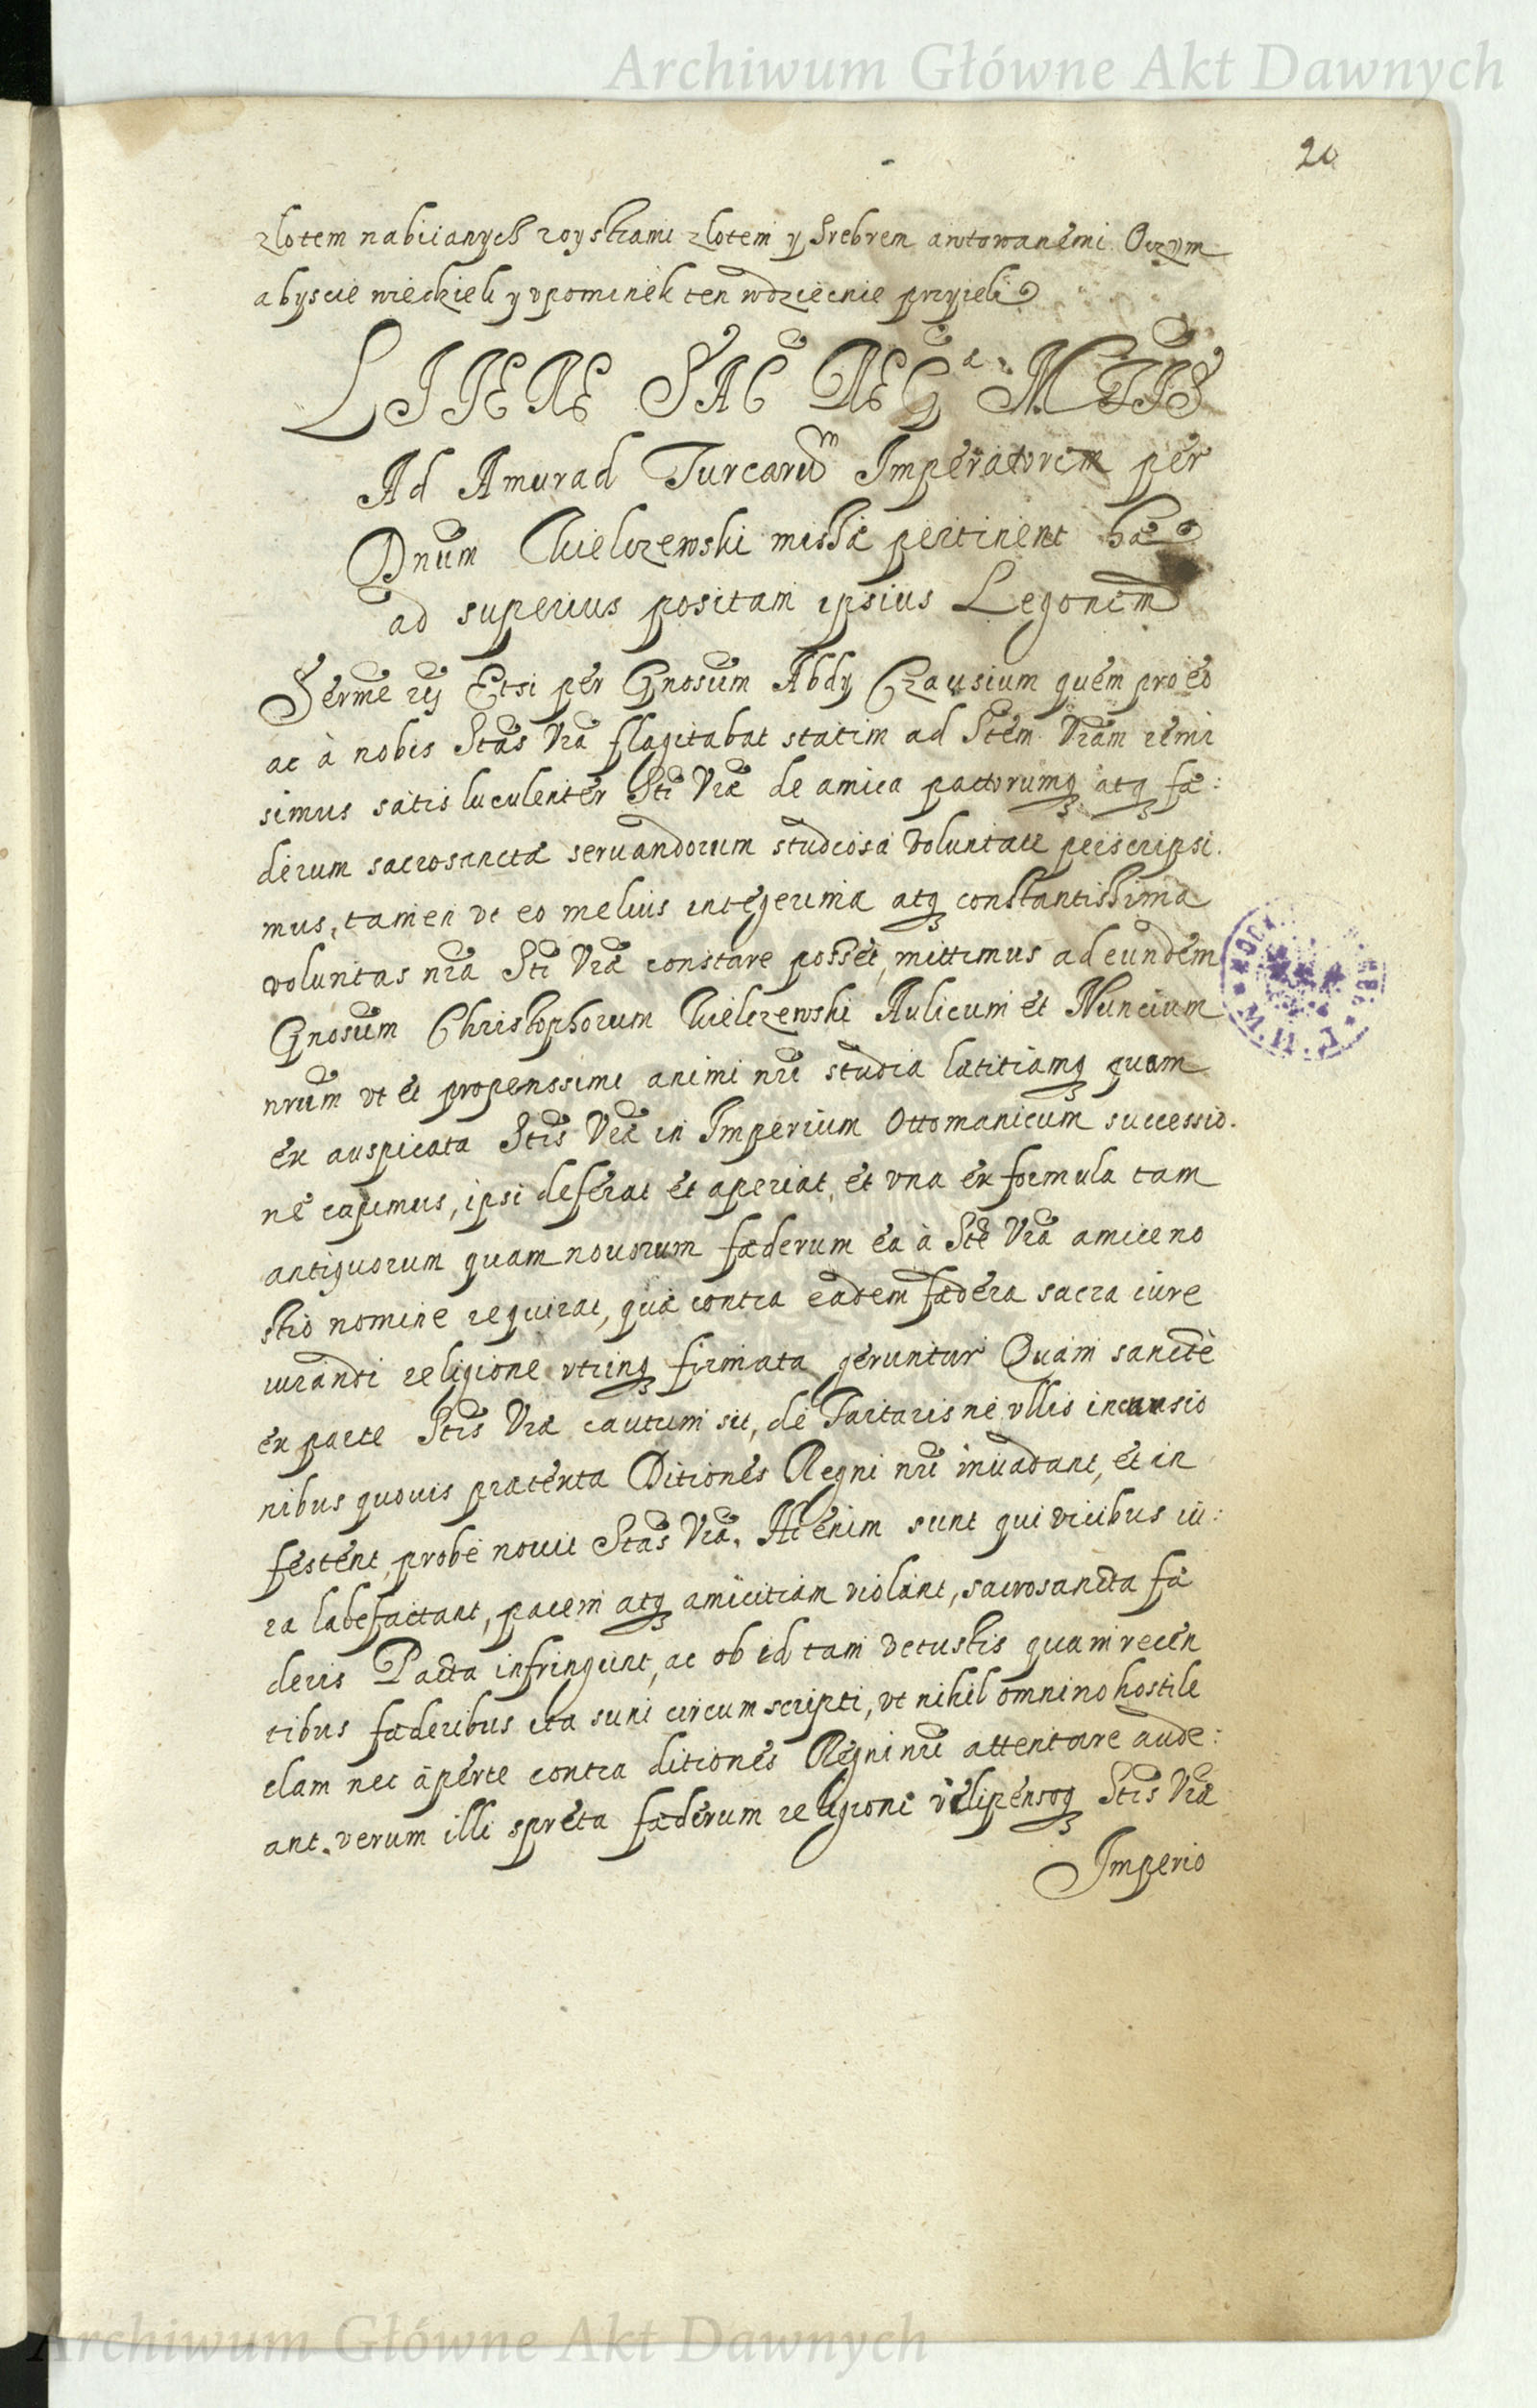 Archiwum Główne Akt Dawnych
20
zlotem nabiianych roystrami zlotem y srebrem
abyscie wiedzieli y vpominek ten wdziecnie przyieli
LITERE SAC REG MTIS
Ad Amurad Turcarum Imperatorem per
Dnum Kielczewski missae pertinent hae
ad superius positam ipsius Legonem
Serme etc Etsi per Gnosum Abdy Czausium quem pro eo
ac à nobis Stas Vra flagitabat statim ad Stem Vram remi
simus satis luculenter Sti Vrae de amica pactorumq atq fæ:
derum sacrosancta seruandorum studiosa voluntate perscripsi.
mus, tamen vt eo melius integerrima atq constantissima
voluntas nra Sti Vrae constare posset, mittimus ad eundem
Gnosum Christophorum Kielczewski Aulicum et Nuncium
nrum vt et propenssimi animi nri studia lætitiamq quam
ex auspicata Stis Vrae in Imperium Ottomanicum successio.
ne capimus, ipsi deferat et aperiat, et vna ex formula tam
antiquorum quam nouorum fæderum ea à Ste Vra amice no
stro nomine requirat, quæ contra eadem fædera sacra iure
iurandi religione vtrinq firmata geruntur Quam sanctè
ex parte Stis Vrae cautum sit, de Tartaris ne vllis incursio
nibus quouis prætextu Ditiones Regni nri inuadant, et in
festent, probe nouit Stas Vra. At enim sunt qui vicibus iu:
ra labefactant, pacem atq amicitiam violant, sacrosancta fæ
deris Pacta infringunt, ac ob id tam vetustis quam recen
tibus fæderibus ita sunt circumscripti, vt nihil omnino hostile
clam nec aperte contra ditiones Regni nri attentare aude:
ant. verum illi spreta fæderum religione vilipensoq Stis Vrae
Imperio
Archiwum Główne Akt Dawnych